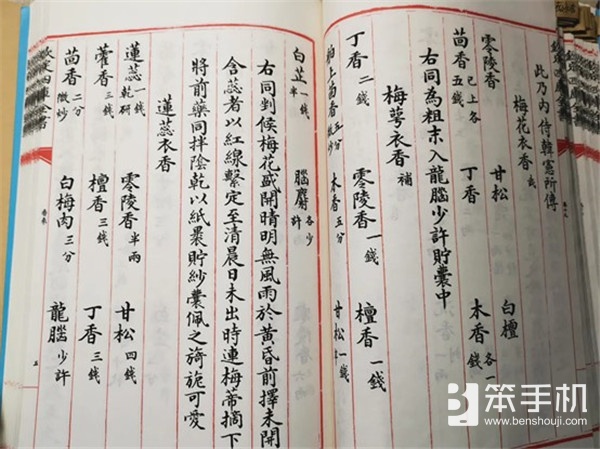 此乃内侍韓憲所傳
梅花衣香 武
零陵香 甘松 白檀
茴香 已上各五錢 丁香 木香 各一錢
右同為粗末入龍腦少許貯囊中
梅萼衣香 補
丁香 二錢 零陵香 一錢 檀香 一錢
舶上茴香 五分微炒 木香 五分 甘松
白芷 一錢半 腦麝 各少許
右同剉候梅花盛開晴明無風雨於黄昏前擇未開
含蕊者以紅線繫定至清晨日未出時連梅蒂摘下
將前藥同拌陰乾以紙裹貯紗囊佩之旖旎可愛
蓮蕊衣香
蓮蕊 一錢乾研 零陵香 半兩 甘松 四錢
藿香 三錢 檀香 三錢 丁香 三錢
茴香 二分微炒 白梅肉 三分 龍腦 少許
欽定四庫全書
五
笨手机
www.benshouji.com